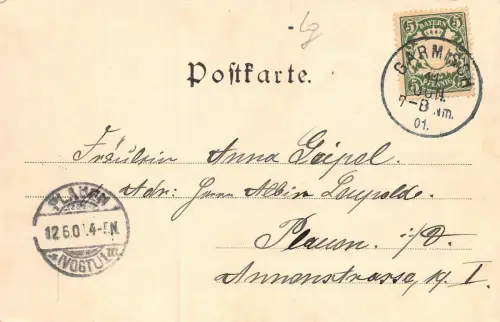 5 BAYERN 5
5 PFENNIG 5
GARMISCH
11
JUN.
7-8 Nm.
01.
Postkarte.
Fräulein Anna Geipel.
Adr: Herrn Albin Luppolde.
Plauen. i/V.
Annenstrasse, 
PLAUEN
12.6.01.4-5N.
(VOGTL)1